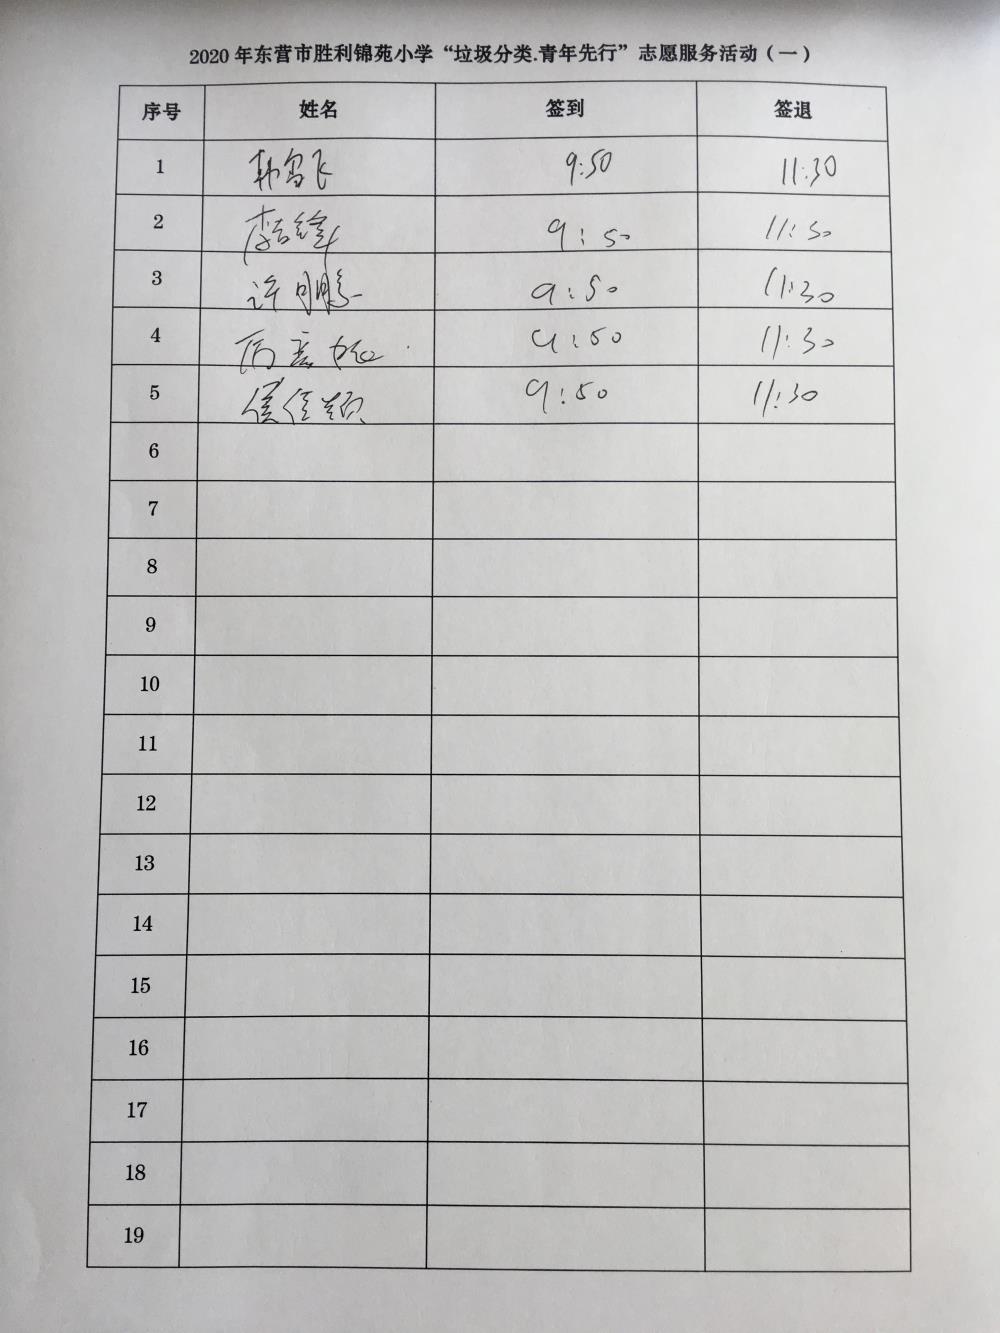 2020 年东营市胜利锦苑小学“垃圾分类.青年先行”志愿服务活动（一）
序号 姓名 签到 签退
1 9:50 11:30
2 李吉锋 9:50 11:50
3 许明鹏 9:50 11:30
4 9:50 11:30
5 9:50 11:30
6
7
8
9
10
11
12
13
14
15
16
17
18
19